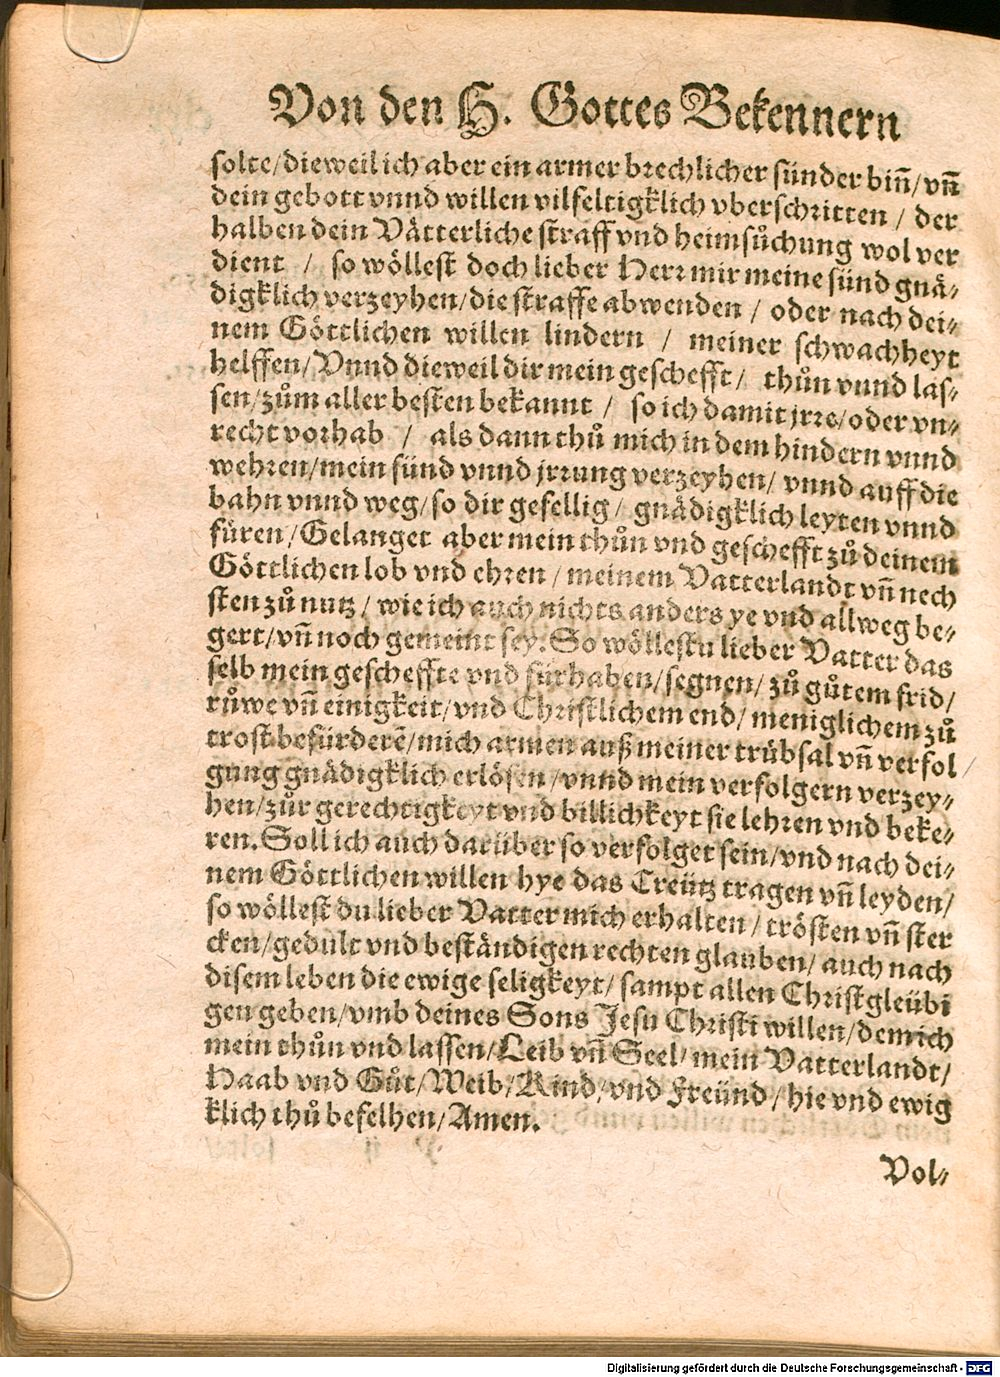 Von den H. Gottes Bekennern
solte/dieweil ich aber ein armer brechlicher sünder biñ/vñ
dein gebott vnnd willen vilfeltigklich vberschritten / der
halben dein Vätterliche straff vnd heimsůchung wol ver
dient / so wöllest doch lieber Herr mir meine sünd gnä-
digklich verzeyhen/die straffe abwenden / oder nach dei-
nem Göttlichen willen lindern / meiner schwachheyt
helffen/Vnnd dieweil dir mein geschefft/ thůn vnnd las-
sen/zům aller besten bekannt / so ich damit jrre/oder vn-
recht vorhab / als dann thů mich in dem hindern vnnd
wehren/mein sünd vnnd jrrung verzeyhen/ vnnd auff die
bahn vnnd weg/so dir gefellig/ gnädigklich leyten vnnd
füren/Gelanget aber mein thůn vnd geschefft zů deinem
Göttlichen lob vnd ehren/meinem Vatterlandt vñ nech
sten zů nutz/wie ich auch nichts anders ye vnd allweg be-
gert/vñ noch gemeint sey. So wöllestu lieber Vatter das
selb mein geschefft vnd fürhaben/segnen/zů gůtem frid/
růwe vñ einigkeit/vnd Christlichem end/meniglichem zů
trost befürderẽ/mich armen auß meiner trübsal vñ verfol/
gung gnädigklich erlösen/vnnd mein verfolgern verzey-
hen/zůr gerechtigkeyt vnd billichkeyt sie lehren vnd beke-
ren. Soll ich auch darüber so verfolget sein/vnd nach dei-
nem Göttlichen willen hye das Creütz tragen vñ leyden/
so wöllest du lieber Vatter mich erhalten/trösten vñ ster
cken/gedult vnd beständigen rechten glauben/auch nach
disem leben die ewige seligkeyt/sampt allen Christgleübi
gen geben/vmb deines Sons Jesu Christi willen/dem ich
mein thůn vnd lassen/Leib vñ Seel/mein Vatterlandt/
Haab vnd Gůt/Weib/Kind/vnd Freünd/hie vnd ewig
klich thů befelhen/Amen.
Vol-
Digitalisierung gefördert durch die Deutsche Forschungsgemeinschaft - DFG